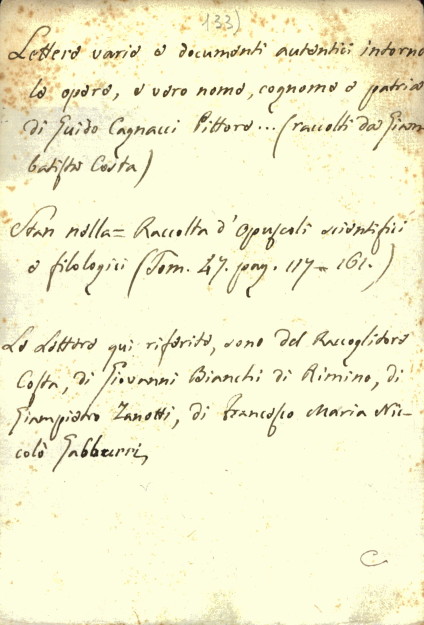 133)
Lettere varie e documenti autentici intorno
le opere, e vero nome, cognome e patria
di Guido Cagnacci Pittore... (raccolti da Giam
batista Costa)
Stan nella = Raccolta d'Opuscoli scientifici
e filologici (Tom. 47. pag. 117-161.)
Le Lettere qui riferite, sono del Raccoglitore
Costa, di Giovanni Bianchi di Rimino, di
Giampietro Zanotti, di Francesco Maria Nic-
colò Gabburri,
C